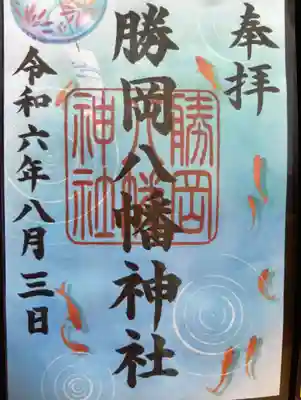 奉拝
勝岡八幡神社
勝岡
八幡
神社
令和六年八月三日